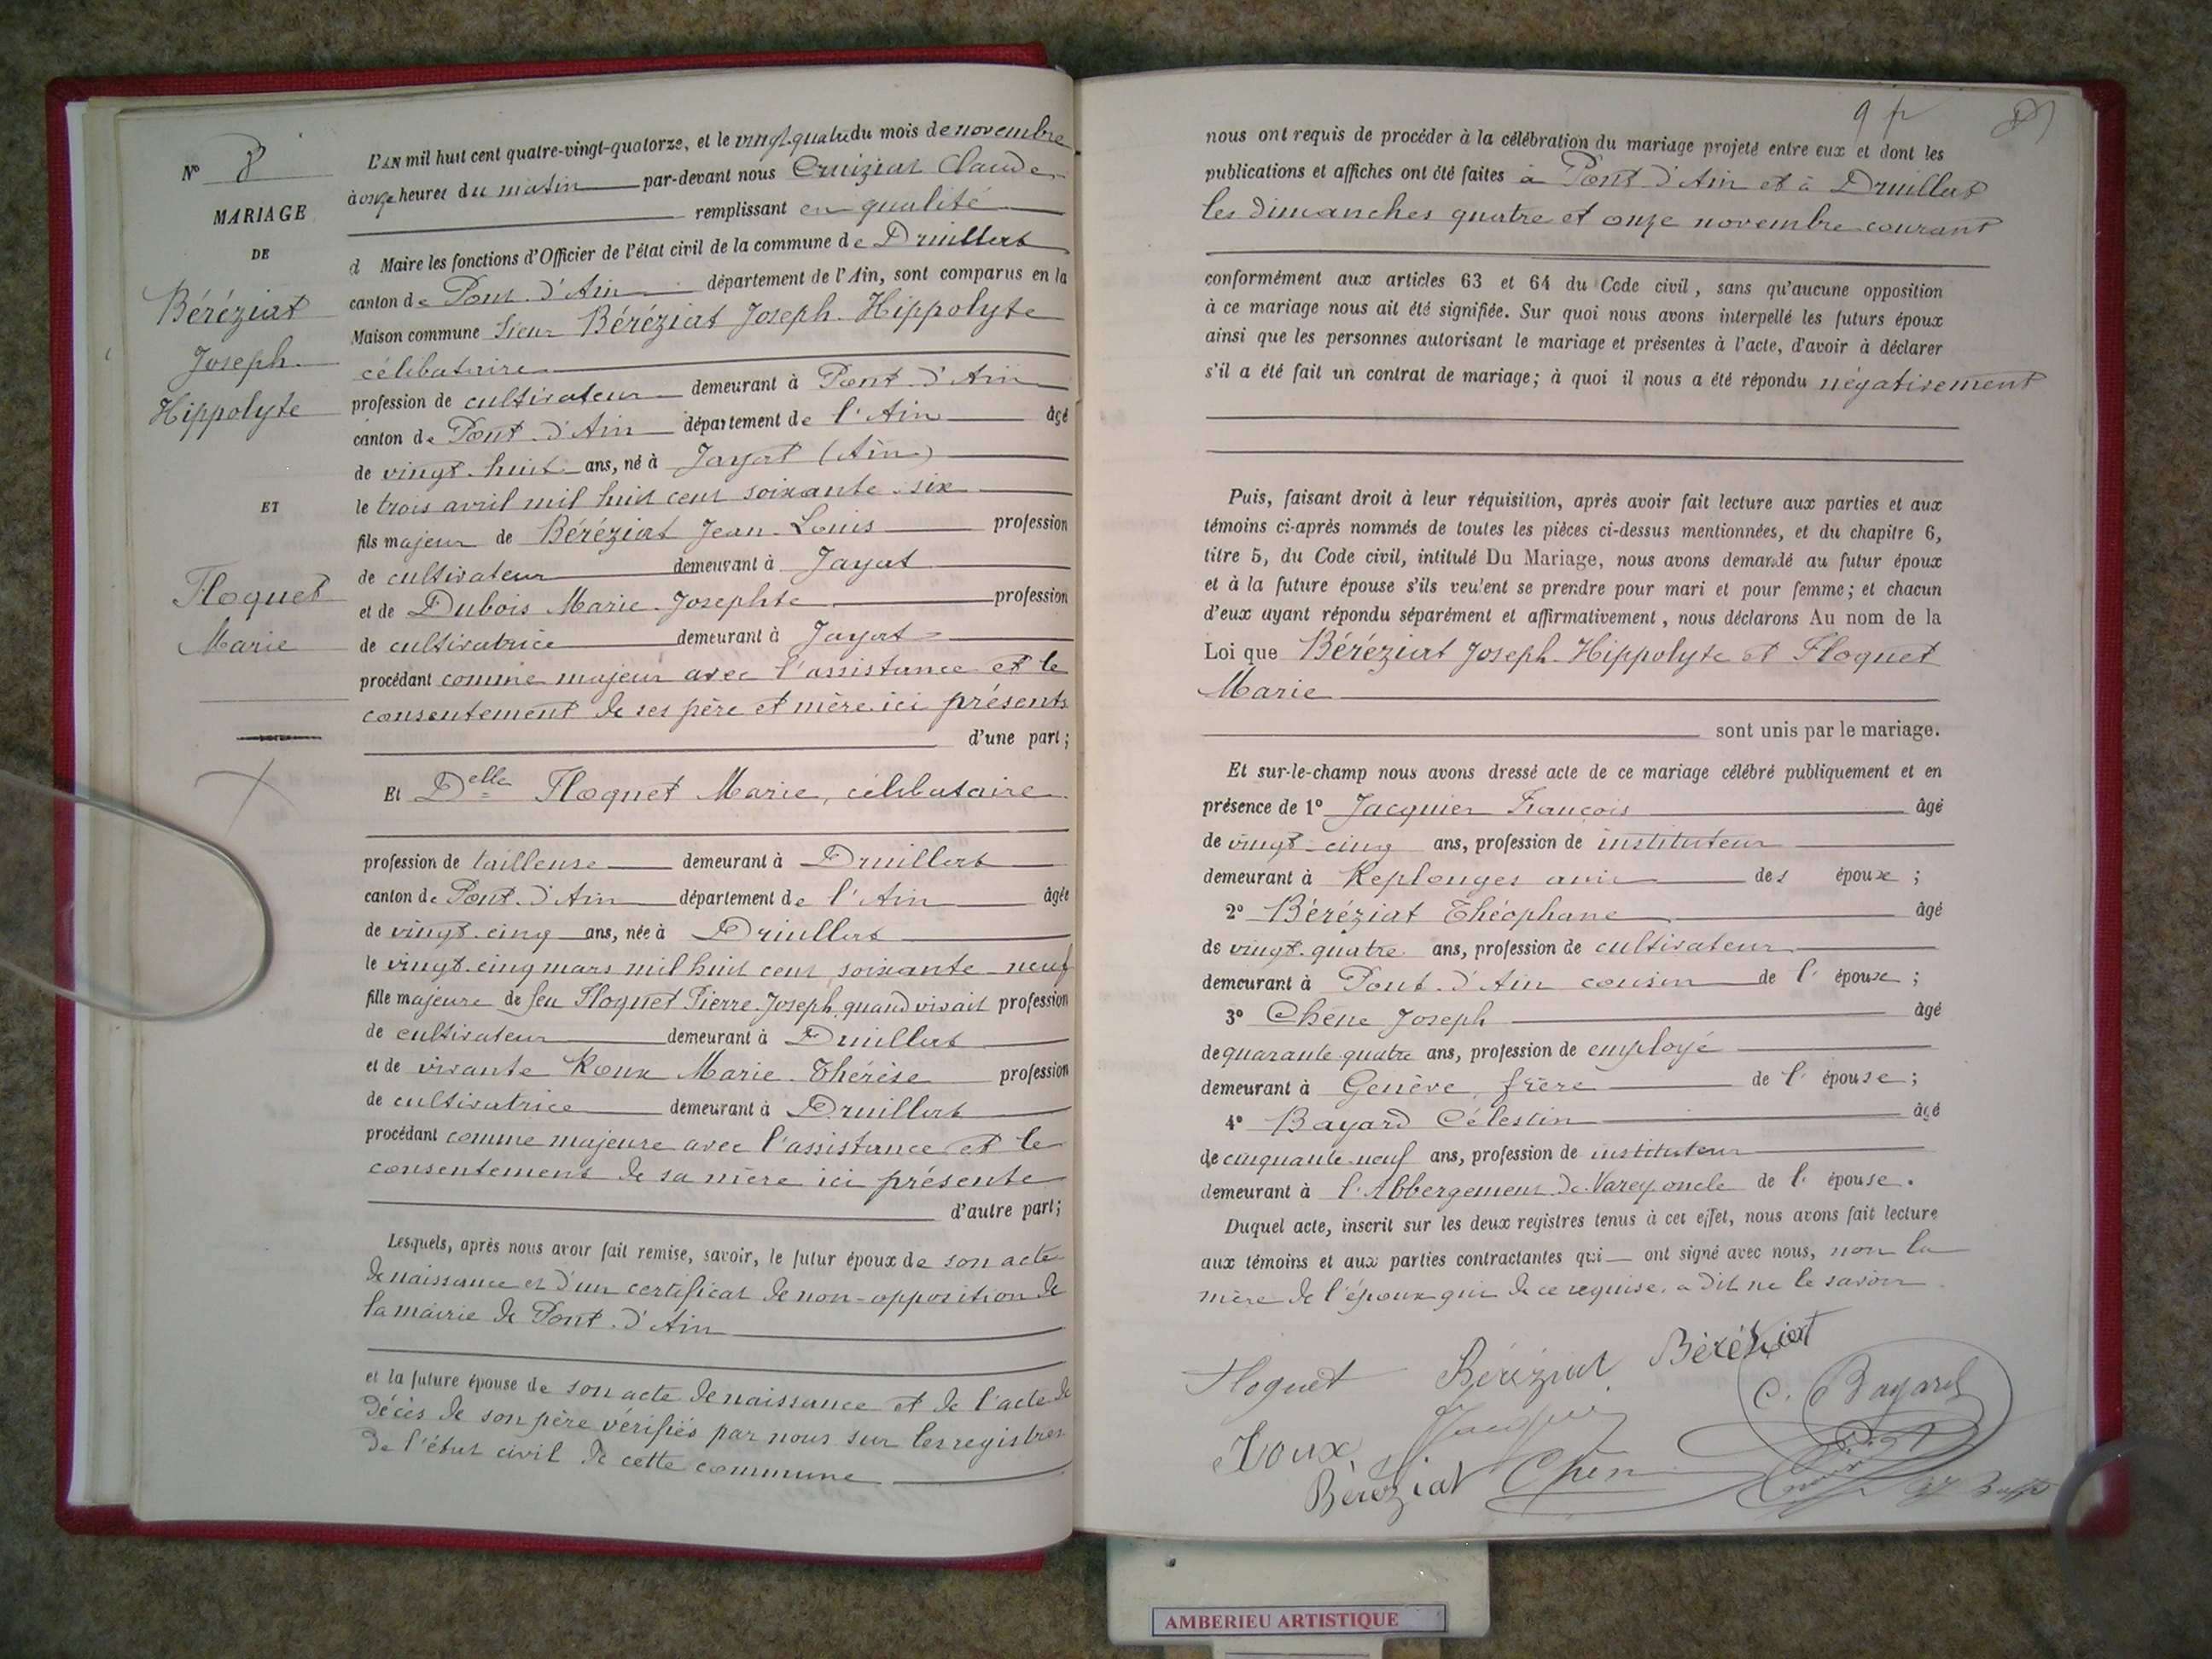 N° 8
MARIAGE
DE
Béréziat
Joseph
Hippolyte
ET
Floquet
Marie
L'AN mil huit cent quatre-vingt-quatorze, et le vingt-quatre du mois de novembre
à onze heures du matin par-devant nous Cruiziat Claude
remplissant en qualité
d Maire les fonctions d'Officier de l'état civil de la commune de Druillat
canton de Pont-d'Ain département de l'Ain, sont comparus en la
Maison commune Sieur Béréziat Joseph-Hippolyte
célibataire
profession de cultivateur demeurant à Pont-d'Ain
canton de Pont-d'Ain département de l'Ain âgé
de vingt-huit ans, né à Jayat (Ain)
le trois avril mil huit cent soixante-six
fils majeur de Béréziat Jean-Louis profession
de cultivateur demeurant à Jayat
et de Dubois Marie-Josephte profession
de cultivatrice demeurant à Jayat
procédant comme majeur avec l'assistance et le
consentement de ses père et mère ici présents
d'une part;
Et Delle Floquet Marie, célibataire
profession de tailleuse demeurant à Druillat
canton de Pont-d'Ain département de l'Ain âgée
de vingt-cinq ans, née à Druillat
le vingt-cinq mars mil huit cent soixante-neuf
fille majeure de feu Floquet Pierre-Joseph, quand vivait profession
de cultivateur demeurant à Druillat
et de vivante Roux Marie-Thérèse profession
de cultivatrice demeurant à Druillat
procédant comme majeure avec l'assistance et le
consentement de sa mère ici présente
d'autre part;
Lesquels, après nous avoir fait remise, savoir, le futur époux de son acte
de naissance et d'un certificat de non-opposition de
la mairie de Pont-d'Ain
et la future épouse de son acte de naissance et de l'acte de
décès de son père vérifiés par nous sur les registres
de l'état civil de cette commune
nous ont requis de procéder à la célébration du mariage projeté entre eux et dont les
publications et affiches ont été faites à Pont d'Ain et à Druillat
les dimanches quatre et onze novembre courant
conformément aux articles 63 et 64 du Code civil, sans qu'aucune opposition
à ce mariage nous ait été signifiée. Sur quoi nous avons interpellé les futurs époux
ainsi que les personnes autorisant le mariage et présentes à l'acte, d'avoir à déclarer
s'il a été fait un contrat de mariage; à quoi il nous a été répondu négativement
Puis, faisant droit à leur réquisition, après avoir fait lecture aux parties et aux
témoins ci-après nommés de toutes les pièces ci-dessus mentionnées, et du chapitre 6,
titre 5, du Code civil, intitulé Du Mariage, nous avons demandé au futur époux
et à la future épouse s'ils veulent se prendre pour mari et pour femme; et chacun
d'eux ayant répondu séparément et affirmativement, nous déclarons Au nom de la
Loi que Béréziat Joseph-Hippolyte et Floquet
Marie
sont unis par le mariage.
Et sur-le-champ nous avons dressé acte de ce mariage célébré publiquement et en
présence de 1° Jacquier François âgé
de vingt-cinq ans, profession de instituteur
demeurant à Replonges ami des époux;
2° Béréziat Théophane âgé
de vingt-quatre ans, profession de cultivateur
demeurant à Pont-d'Ain cousin de l' époux;
3° Chêne Joseph âgé
de quarante-quatre ans, profession de employé
demeurant à Genève, frère de l' épouse;
4° Bayard Célestin âgé
de cinquante-neuf ans, profession de instituteur
demeurant à l'Abbergement-de-Varey oncle de l' épouse.
Duquel acte, inscrit sur les deux registres tenus à cet effet, nous avons fait lecture
aux témoins et aux parties contractantes qui ont signé avec nous, non la
mère de l'époux qui de ce requise, a dit ne le savoir
Floquet Béréziat Béréziat
C. Bayard
Roux
Béréziat Chêne
AMBERIEU ARTISTIQUE